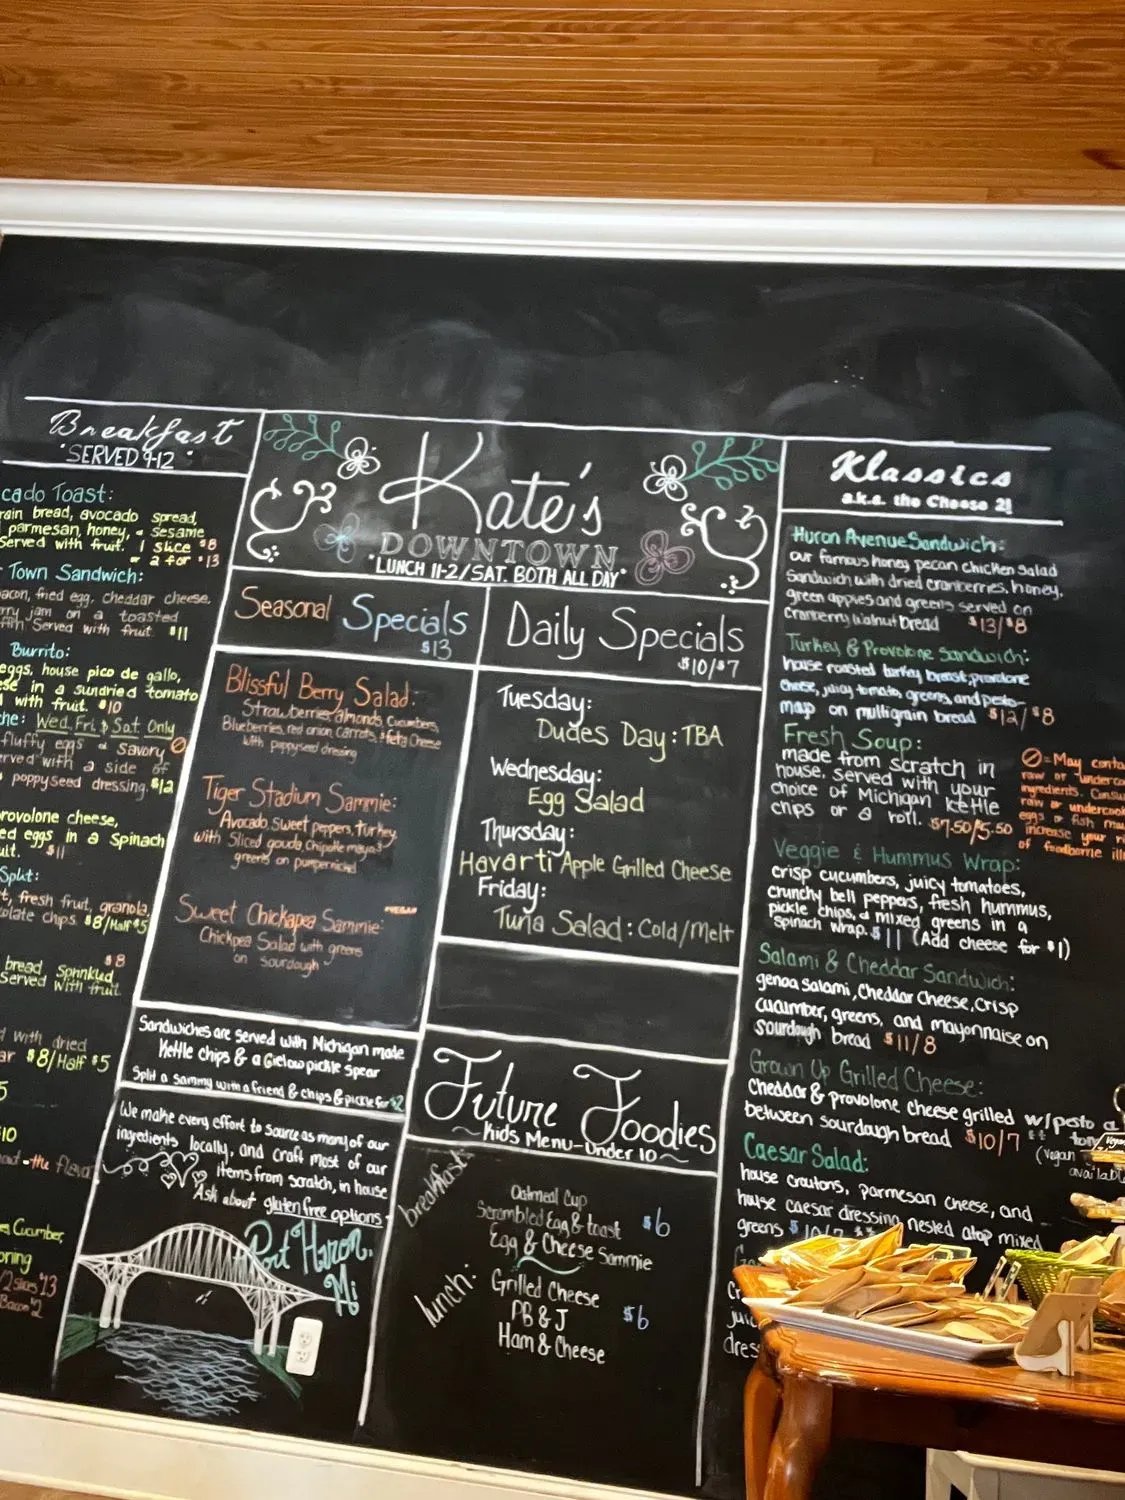 Breakfast
SERVED 9-12
cado Toast:
rain bread, avocado spread,
parmesan, honey, & sesame
Served with fruit. 1 slice $8
or 2 for $13
Town Sandwich:
acon, fried egg, cheddar cheese,
rry jam on a toasted
Served with fruit. $11
Burrito:
eggs, house pico de gallo,
se in a sundried tomato
with fruit. $10
che: Wed, Fri, & Sat. Only
fluffy eggs & savory
erved with a side of
poppyseed dressing. $12
provolone cheese,
ed eggs in a Spinach
uit. $11
Split:
t, fresh fruit, granola,
olate chips $8/Half $5
$8
bread, Sprinkled
Served with fruit.
d with dried
ar $8/Half $5
5
$10
Cucumber,
Kate's
DOWNTOWN
LUNCH 11-2/SAT. BOTH ALL DAY
Seasonal Specials
$13
Blissful Berry Salad:
Strawberries, almonds, Cucumbers,
Blueberries, red onion, Carrots, & feta Cheese
with poppyseed dressing
Tiger Stadium Sammie:
Avocado, Sweet peppers, turkey,
with Sliced gouda, Chipotle mayo &
greens on pumpernickel
Sweet Chickapea Sammie:
Chickpea Salad with greens
on Sourdough
Sandwiches are served with Michigan made
Kettle chips & a Gielow pickle spear
Split a sammy with a friend & chips & pickle for $2
We make every effort to source as many of our
ingredients locally, and craft most of our
items from scratch, in house
Ask about gluten free options
Port Huron,
Mi
Daily Specials
$10/$7
Tuesday:
Dudes Day: TBA
Wednesday:
Egg Salad
Thursday:
Havarti Apple Grilled Cheese
Friday:
Tuna Salad: Cold/Melt
Future Foodies
~ Kids Menu-Under 10 ~
breakfast:
Oatmeal Cup
Scrambled Egg & toast $6
Egg & Cheese Sammie
lunch:
Grilled Cheese
PB & J $6
Ham & Cheese
Klassics
a.k.a. the Cheese 2!
Huron Avenue Sandwich:
our famous honey pecan chicken Salad
Sandwich with dried cranberries, honey,
green apples and greens served on
Cranberry walnut bread $13/$8
Turkey & Provolone Sandwich:
house roasted turkey breast, provolone
cheese, juicy tomato, greens, and pesto-
mayo on multigrain bread $12/$8
Fresh Soup:
made from scratch in
house, served with your
choice of Michigan kettle
chips or a roll. $7.50/5.50
=May conta
raw or underco
ingredients. Consu
raw or undercook
eggs or fish ma
increase your ri
of foodborne ill
Veggie & Hummus Wrap:
crisp cucumbers, juicy tomatoes,
crunchy bell peppers, fresh hummus,
pickle chips, & mixed greens in a
spinach wrap. $11 (Add cheese for $1)
Salami & Cheddar Sandwich:
genoa salami, Cheddar Cheese, crisp
cucumber, greens, and mayonnaise on
sourdough bread $11/8
Grown Up Grilled Cheese:
Cheddar & provolone cheese grilled w/pesto &
between sourdough bread $10/7 ** tom
(Vegan
availabl
Caesar Salad:
house croutons, parmesan cheese, and
house caesar dressing nested atop mixed
greens $10/7 **
Cr
juic
dres